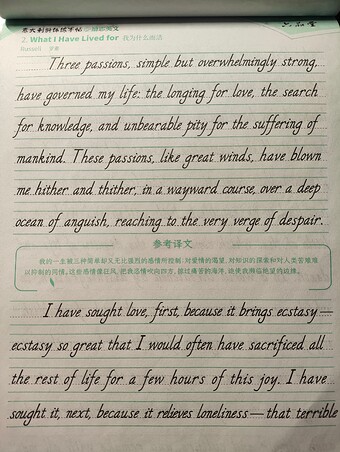 意大利斜体练字帖
2. What I Have Lived for 我为什么而活
Russell 罗素
Three passions, simple but overwhelmingly strong,
have governed my life: the longing for love, the search
for knowledge, and unbearable pity for the suffering of
mankind. These passions, like great winds, have blown
me hither and thither, in a wayward course, over a deep
ocean of anguish, reaching to the very verge of despair.
参考译文
我的一生被三种简单却又无比强烈的感情所控制:对爱情的渴望,对知识的探索和对人类苦难难
以抑制的同情。这些感情像狂风,把我恣情吹向四方,掠过痛苦的海洋,迫使我濒临绝望的边缘。
I have sought love, first, because it brings ecstasy—
ecstasy so great that I would often have sacrificed all
the rest of life for a few hours of this joy. I have
sought it, next, because it relieves loneliness—that terrible